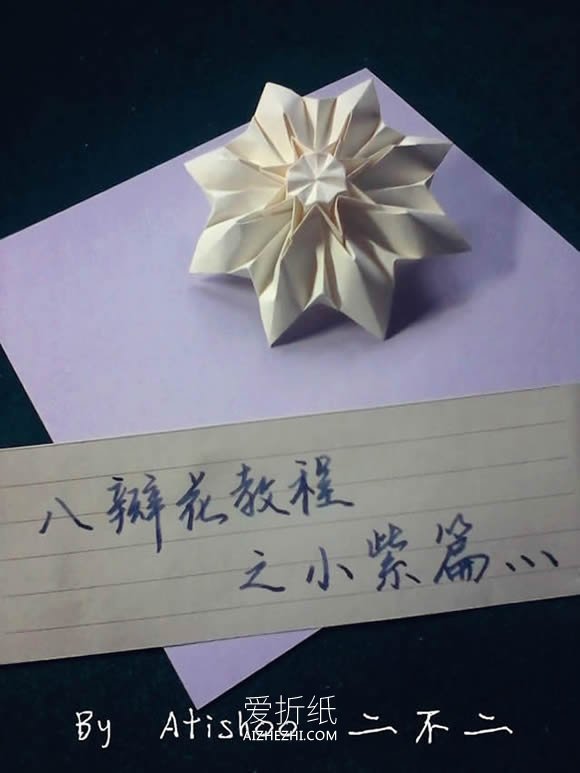 八瓣花教程
之小紫篇...
By Atishoo 二不二
爱折纸
AIZHEZHI.COM